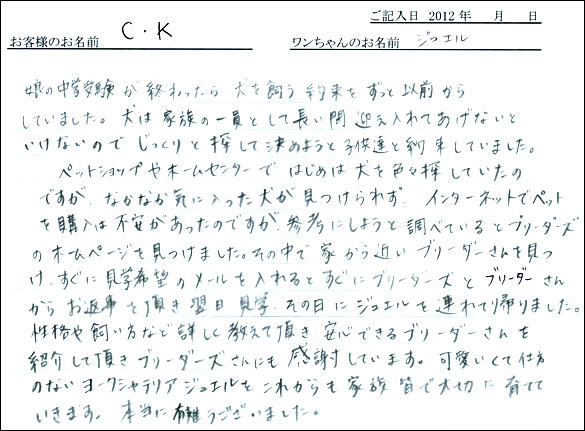 ご記入日 2012 年　月　日
お客様のお名前 C・K ワンちゃんのお名前 ジュエル
娘の中学受験が終わったら 犬を飼う約束をずっと以前から
していました。犬は家族の一員として長い間 迎え入れてあげないと
いけないので じっくりと 探して決めようと子供達と約束していました。
ペットショップやホームセンターで はじめは 犬を色々探していたの
ですが、なかなか気に入った犬が見つけられず、インターネットでペット
を購入は不安があったのですが、参考にしようと調べているとブリーダーズ
のホームページを見つけました。その中で家から近いブリーダーさんを見つ
け、すぐに見学希望のメールを入れるとすぐにブリーダーズと ブリーダーさん
からお返事を頂き翌日見学、その日にジュエルを連れて帰りました。
性格や飼い方など詳しく教えて頂き 安心できるブリーダーさんを
紹介して頂きブリーダーズさんにも 感謝しています。可愛いくて仕方
のないヨークシャテリア ジュエルをこれからも家族皆で大切に育てて
いきます。本当に有難うございました。